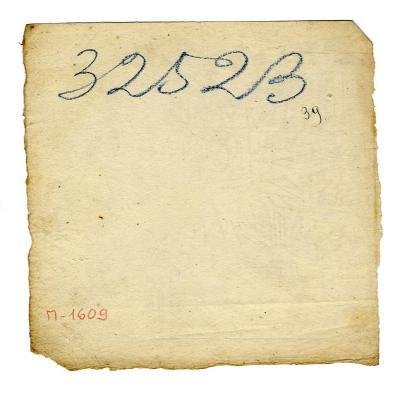 3252В
39
П-1609